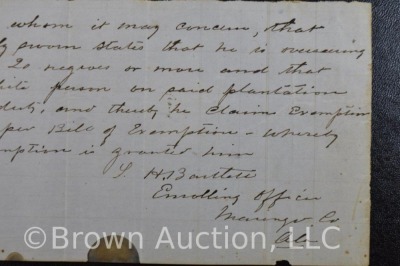 whom it may concern, that
ly proven states that he is overseeing
20 negroes or more and that
white person on said plantation
duty, and thereby he Claims Exemption
per Bill of Exemption - whereby
mption is granted him
S. H. Bartlett
Enrolling Officer
Marengo Co
Ala
© Brown Auction, LLC